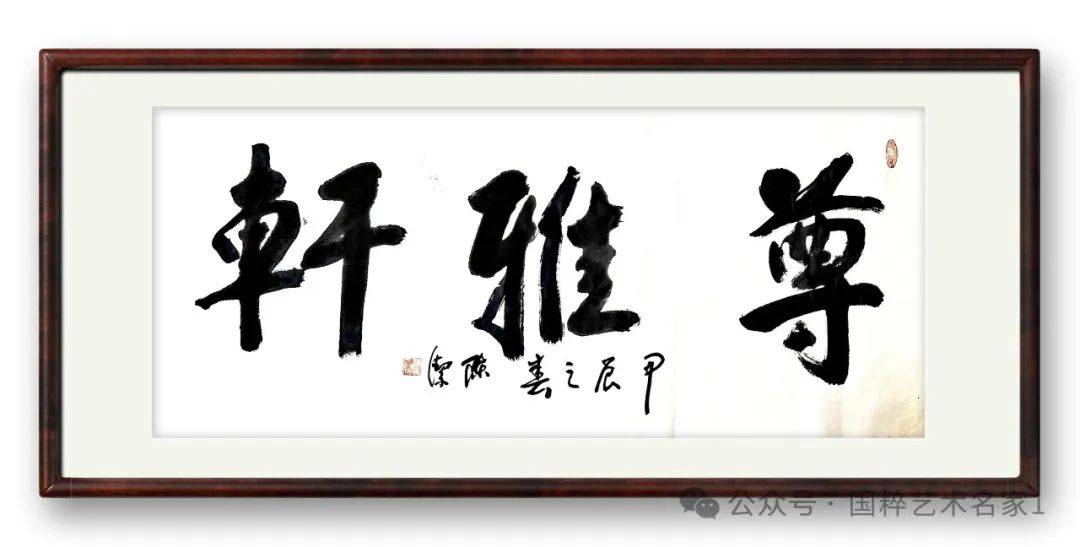 尊雅軒
甲辰之春
公众号 · 国粹艺术名家1